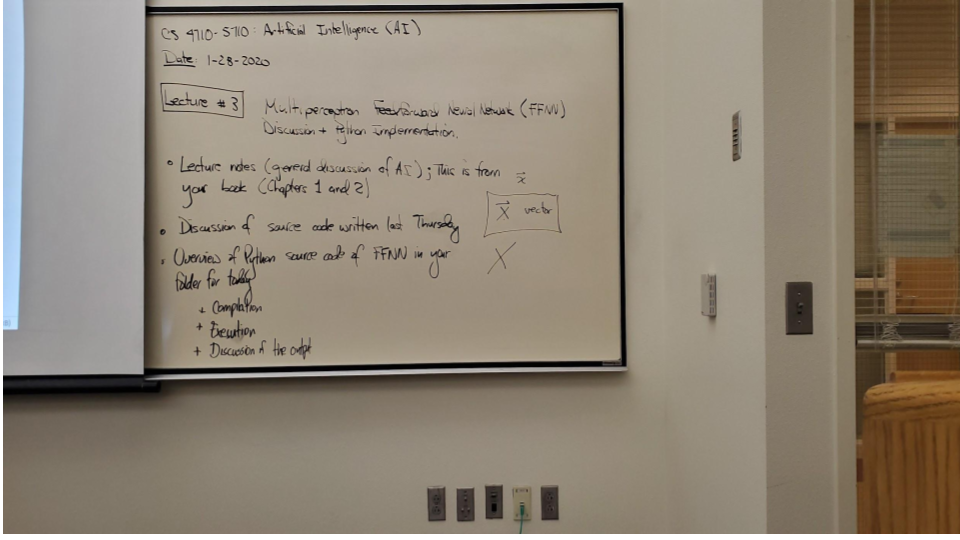 CS 4710-5710: Artificial Intelligence (AI)
Date: 1-28-2020
Lecture # 3
Multiperceptron Feedforward Neural Network (FFNN)
Discussion + Python Implementation.
• Lecture notes (general discussion of AI); This is from
your book (Chapters 1 and 2)
x⃗
X⃗ vector
X
• Discussion of source code written last Thursday
• Overview of Python source code of FFNN in your
folder for today
+ Compilation
+ Execution
+ Discussion of the output